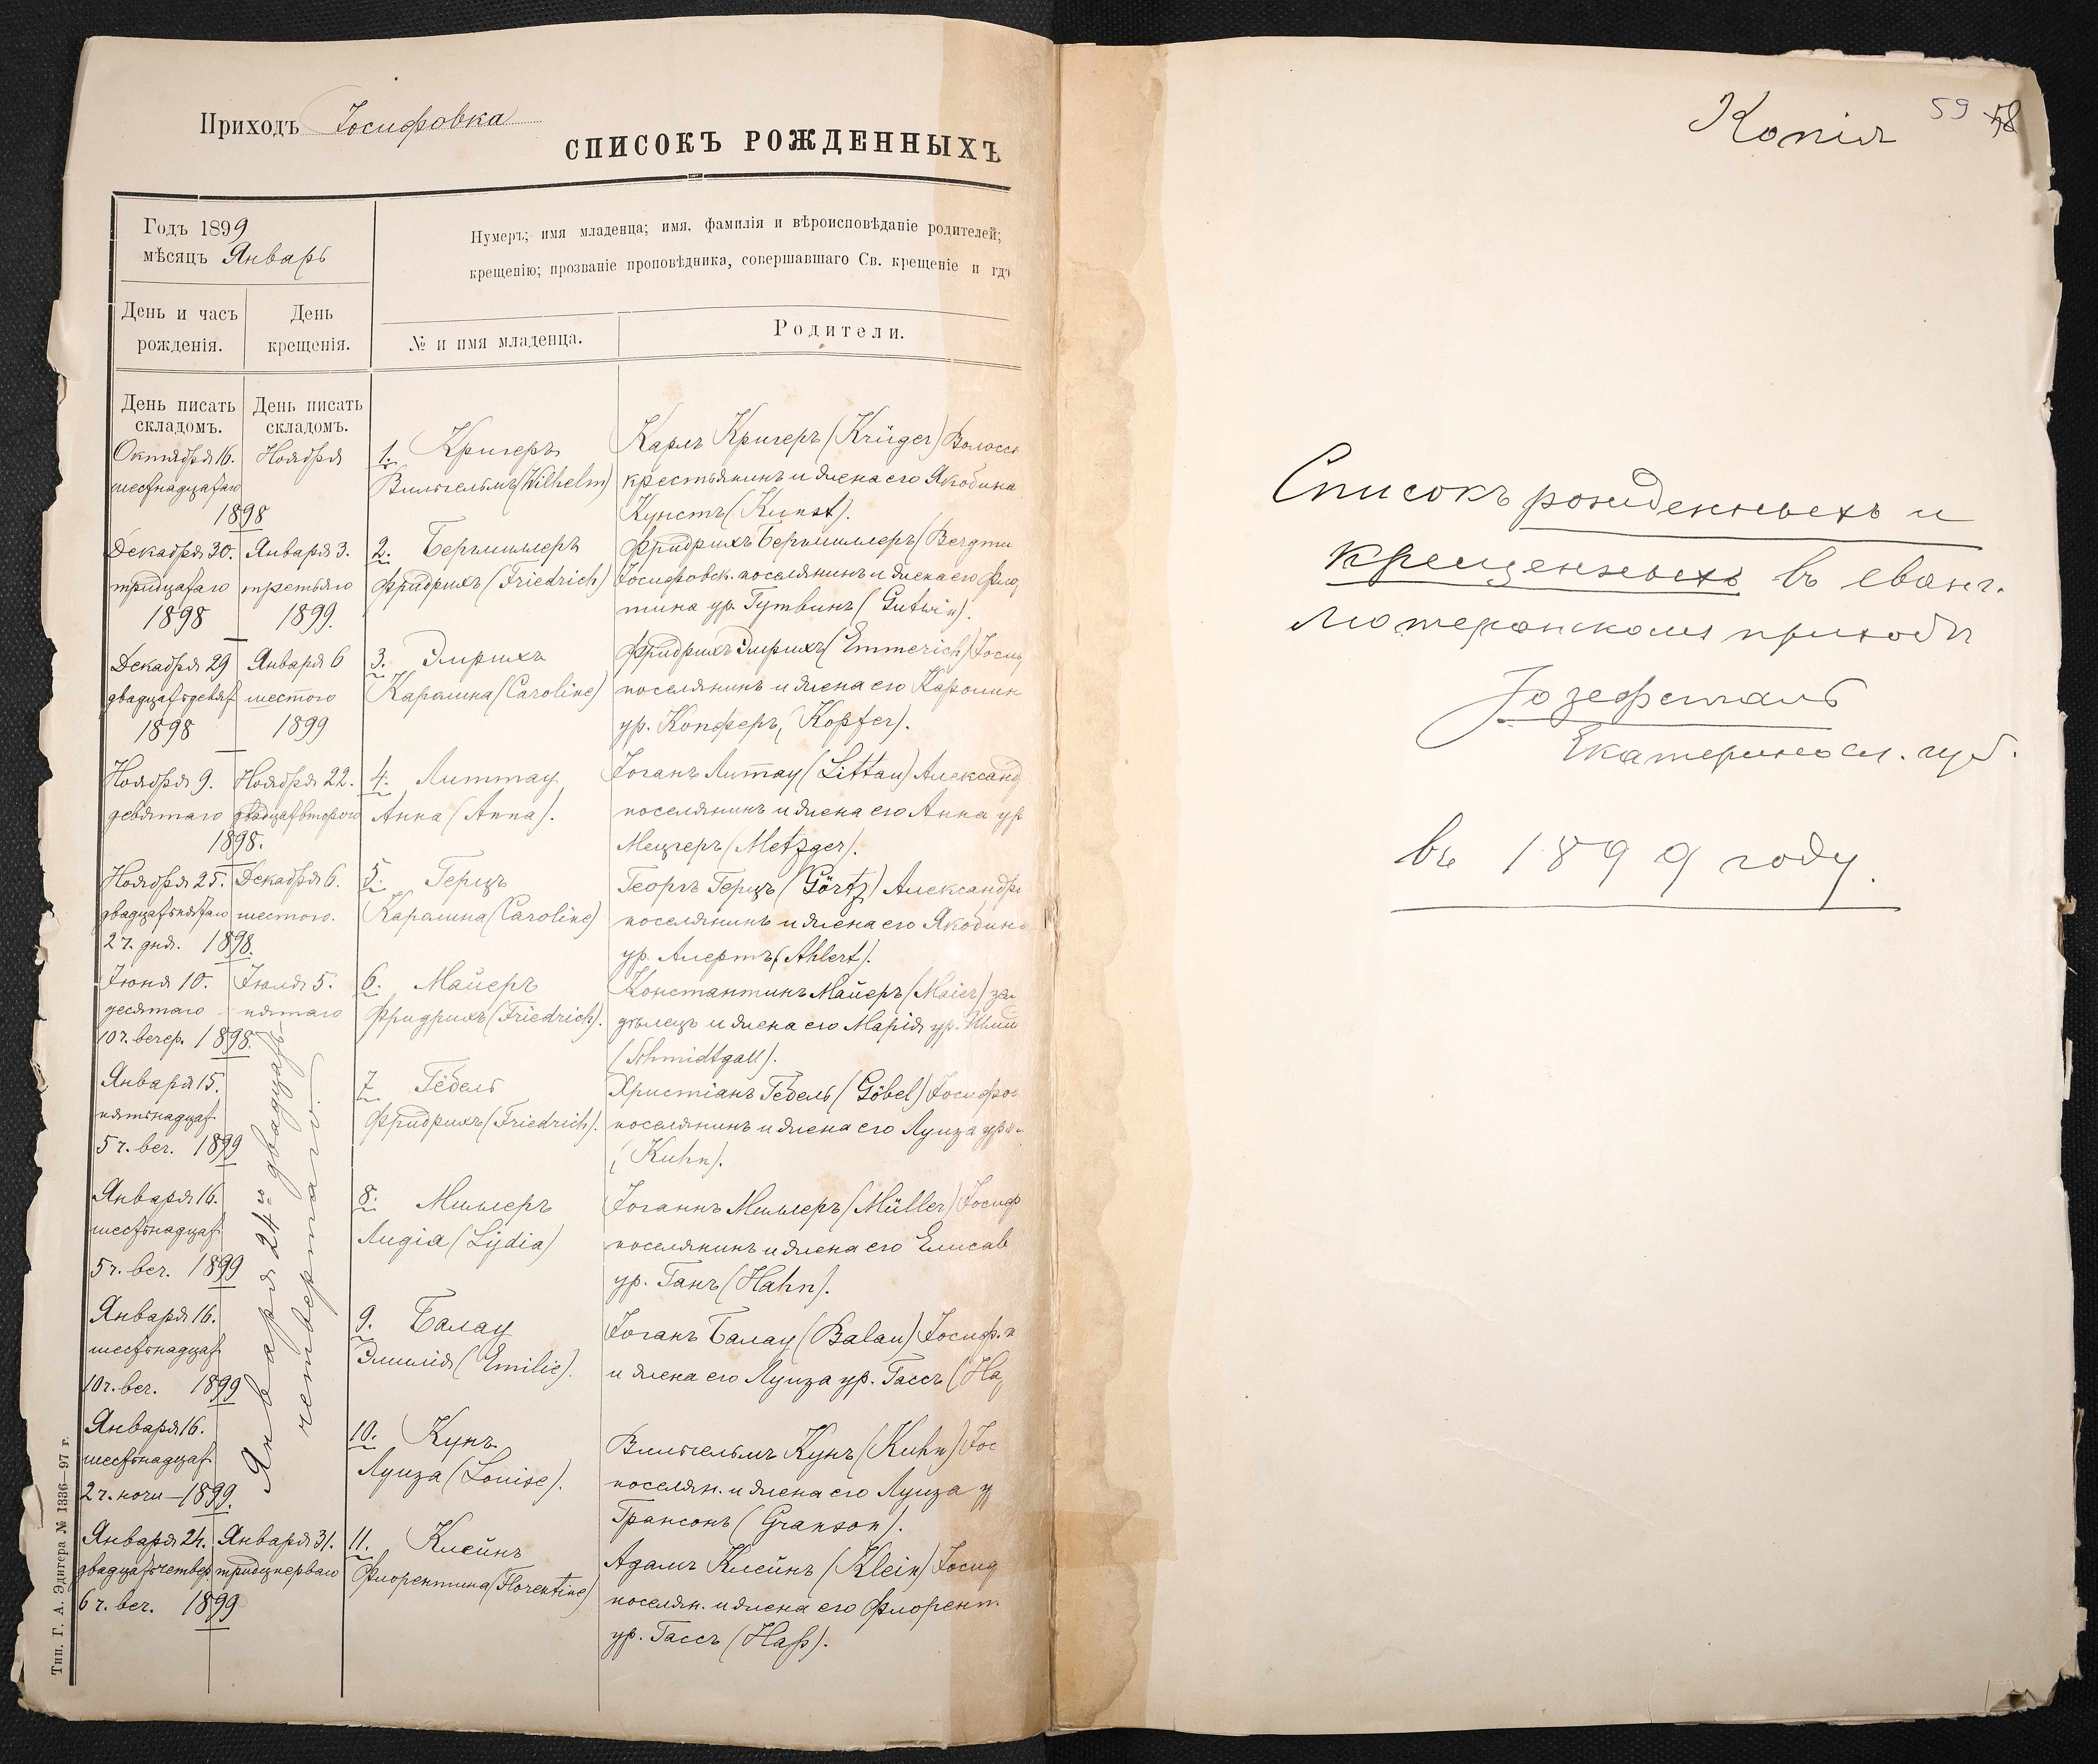 Приходъ Іосифовка
СПИСОКЪ РОЖДЕННЫХЪ
Годъ 1899
мѣсяцъ Январь
Нумеръ; имя младенца; имя, фамилія и вѣроисповѣданіе родителей;
крещенію; прозваніе проповѣдника, совершавшаго Св. крещеніе и гдѣ
День и часъ рожденія.
День крещенія.
№ и имя младенца.
Родители.
День писать складомъ.
День писать складомъ.
Октября 16. Ноября 1. Кригеръ Карлъ Кригеръ (Krüger) Волосск
шестнадцатаго Вильгельмъ (Wilhelm) крестьянинъ и жена его Якобина
1898 Кунстъ (Kunst).
Декабря 30. Января 3. 2. Бергмиллеръ Фридрихъ Бергмиллеръ (Bergmü
тридцатаго третьяго Фридрихъ (Friedrich) Іосифовск. поселянинъ и жена его Фло
1898 1899. тина ур. Гутвинъ (Gutwin).
Декабря 29 Января 6 3. Эмрихъ Фридрихъ Эмрихъ (Emmerich) Іосиф
двадцатьдевят шестого Каролина (Caroline) поселянинъ и жена его Каролин
1898 1899 ур. Копферъ (Kopfer).
Ноября 9. Ноября 22. 4. Литтау Іоганъ Литтау (Littau) Александ
девятаго двадцатьвторого Анна (Anna). поселянинъ и жена его Анна ур
1898. Мецгеръ (Metzger).
Ноября 25. Декабря 6. 5. Герцъ Георгъ Герцъ (Görtz) Александр
двадцатьпятаго шестого. Каролина (Caroline) поселянинъ и жена его Якобина
2 ч. дня. 1898. ур. Алертъ (Ahlert).
Іюня 10. Іюля 5. 6. Майеръ Константинъ Майеръ (Maier) зем
десятаго пятаго Фридрихъ (Friedrich). дѣлецъ и жена его Марія ур. Шми
10 ч. вечер. 1898. (Schmidtgall).
Января 15. 7. Гёбель Христіанъ Гебель (Göbel) Іосифов
пятьнадцат Фридрихъ (Friedrich). поселянинъ и жена его Луиза ур
5 ч. веч. 1899 (Kuhn).
Января 24го двадцать
четвертаго.
Января 16. 8. Миллеръ Іоганнъ Миллеръ (Müller) Іосиф
шестьнадцат Лидія (Lydia) поселянинъ и жена его Елисав
5 ч. веч. 1899 ур. Ганъ (Hahn).
Января 16. 9. Балау Іоганъ Балау (Balau) Іосиф. п
шестьнадцат Эмилія (Emilie). и жена его Луиза ур. Гассъ (Ha
10 ч. веч. 1899
Января 16. 10. Кунъ Вильгельмъ Кунъ (Kuhn) Іос
шестьнадцат Луиза (Louise). поселян. и жена его Луиза у
2 ч. ночи 1899. Грансонъ (Granson).
Января 24. Января 31. 11. Клейнъ Адамъ Клейнъ (Klein) Іосиф
двадцатьчетвер. тридцперваго Флорентина (Florentine) поселян. и жена его Флорент
6 ч. веч. 1899 ур. Гассъ (Haß).
Тип. Г. А. Эдигера № 1336—97 г.
Копія
59 58
Списокъ рожденныхъ и
крещенныхъ въ еванг.
лютеранскомъ приходѣ
Іозефсталь
Екатериносл. губ.
въ 1899 году.